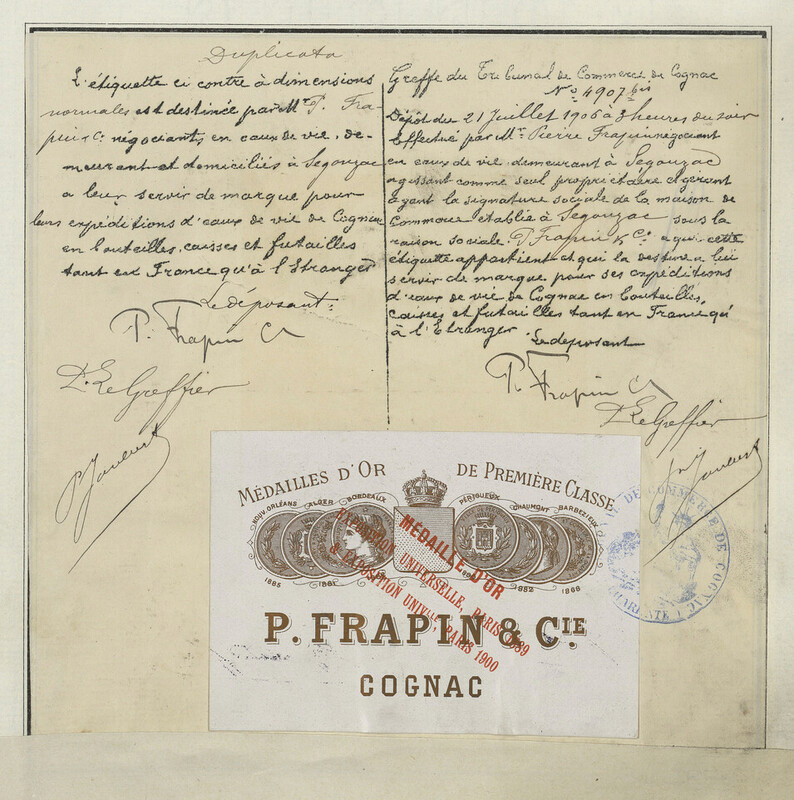 Duplicata
L'étiquette ci contre à dimensions
normales est destinée par Mr P. Fra-
pin & Cº négociants en eaux de vie, de-
meurant et domiciliés à Segonzac
a leur servir de marque pour
leurs expéditions d'eaux de vie de Cognac
en bouteilles, caisses et futailles
tant en France qu'à l'Etranger
Le déposant:
P. Frapin Cº
Le Greffier
Greffe du Tribunal de Commerce de Cognac
Nº 4907 bis
Dépôt du 21 Juillet 1906 à 3 heures du soir
Effectué par Mr Pierre Frapin négociant
en eaux de vie, demeurant à Segonzac
agissant comme seul propriétaire et gérant
ayant la signature sociale de la maison de
Commerce établie à Segonzac sous la
raison sociale. P. Frapin & Cº a qui cette
étiquette appartient et qui la destine a lui
servir de marque pour ses expéditions
d'eaux de vie de Cognac en bouteilles,
caisses et futailles tant en France qu'
à l'Etranger.
Le déposant
P. Frapin Cº
Le Greffier
MÉDAILLES D'OR DE PREMIÈRE CLASSE
NOUV. ORLÉANS ALGER BORDEAUX PÉRIGUEUX CHAUMONT BARBEZIEUX
MÉDAILLE D'OR
EXPOSITION UNIVERSELLE, PARIS 1889
& EXPOSITION UNIVlle, PARIS 1900
1885 1881 1866
P. FRAPIN & CIE.
COGNAC
DE COMMERCE DE COGNAC
CHARENTE